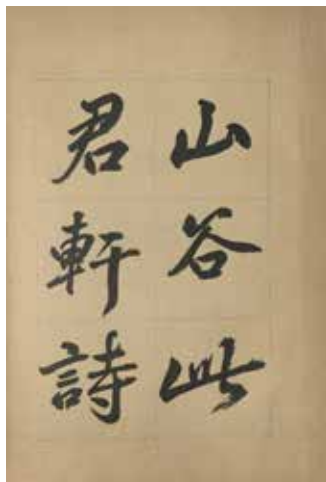 山谷此
君軒詩